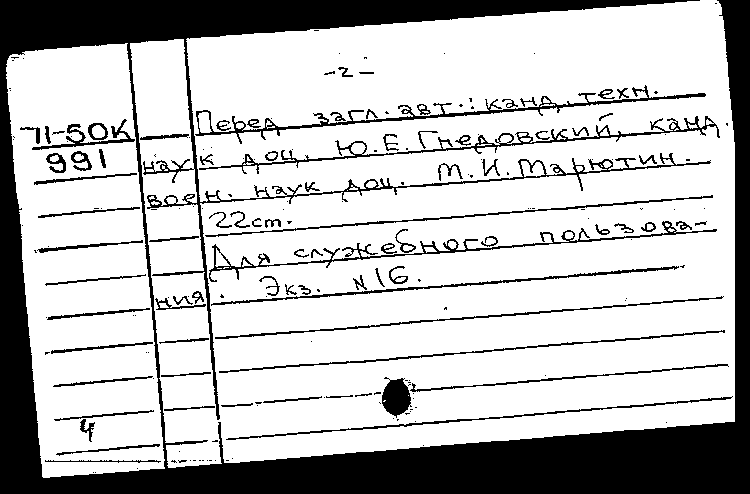 -2-
71-50К Перед загл. авт.: канд. техн.
991 наук доц. Ю.Е. Гнедовский, канд.
воен. наук доц. М.И. Марютин.
22 ст.
Для служебного пользова-
ния. Экз. №16.
4